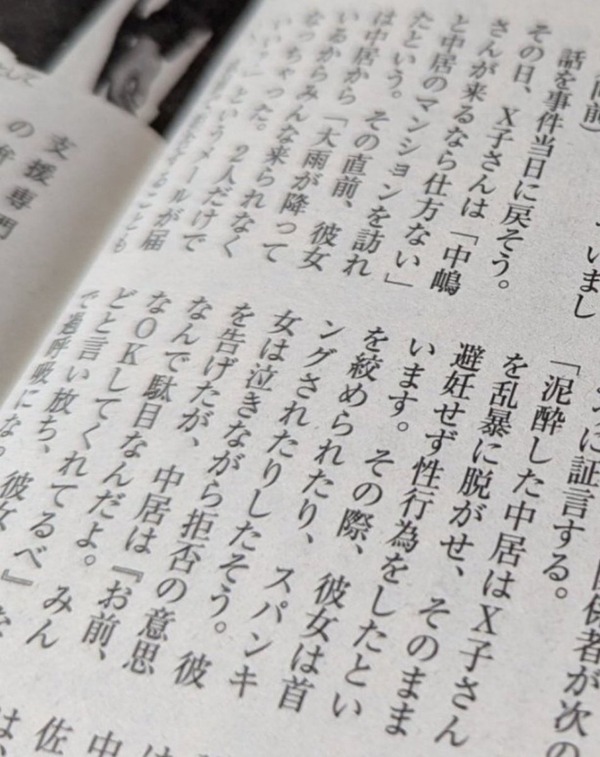 いまし
話を事件当日に戻そう。
その日、X子さんは「中嶋
さんが来るなら仕方ない」
と中居のマンションを訪れ
たという。その直前、彼女
は中居から「大雨が降って
いるからみんな来られなく
なっちゃった。2人だけで
というメールが届
係者が次の
に証言する。
「泥酔した中居はX子さん
を乱暴に脱がせ、そのまま
避妊せず性行為をしたとい
います。その際、彼女は首
を絞められたり、スパンキ
ングされたりしたそう。彼
女は泣きながら拒否の意思
を告げたが、中居は『お前、
なんで駄目なんだよ。みん
なOKしてくれてるべ』な
どと言い放ち、彼女
で過呼吸にな
佐
中
は
支援専門
の弁